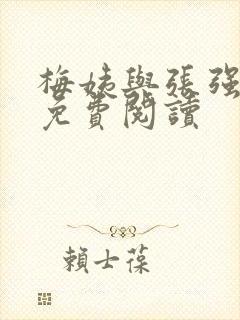 梅姨與張强
免費閱讀
賴士葆